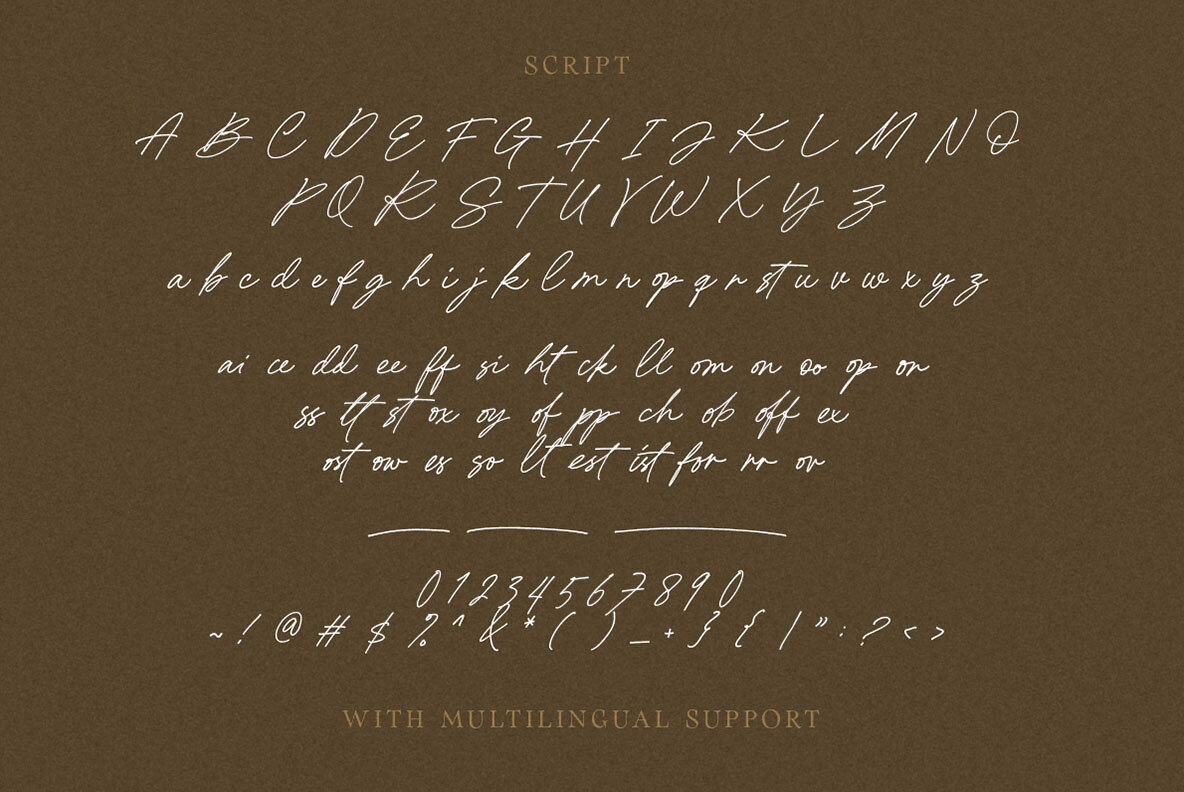 SCRIPT
A B C D E F G H I J K L M N O
P Q R S T U V W X Y Z
a b c d e f g h i j k l m n o p q r s t u v w x y z
ai ce dd ee ff si ht ck ll om on oo op on
ss tt st ox oy of pp ch ob off ex
ost ow es so lt est ist for rr or
0 1 2 3 4 5 6 7 8 9 0
~ ! @ # $ % ^ & * ( ) _ + } { | " : ? < >
WITH MULTILINGUAL SUPPORT